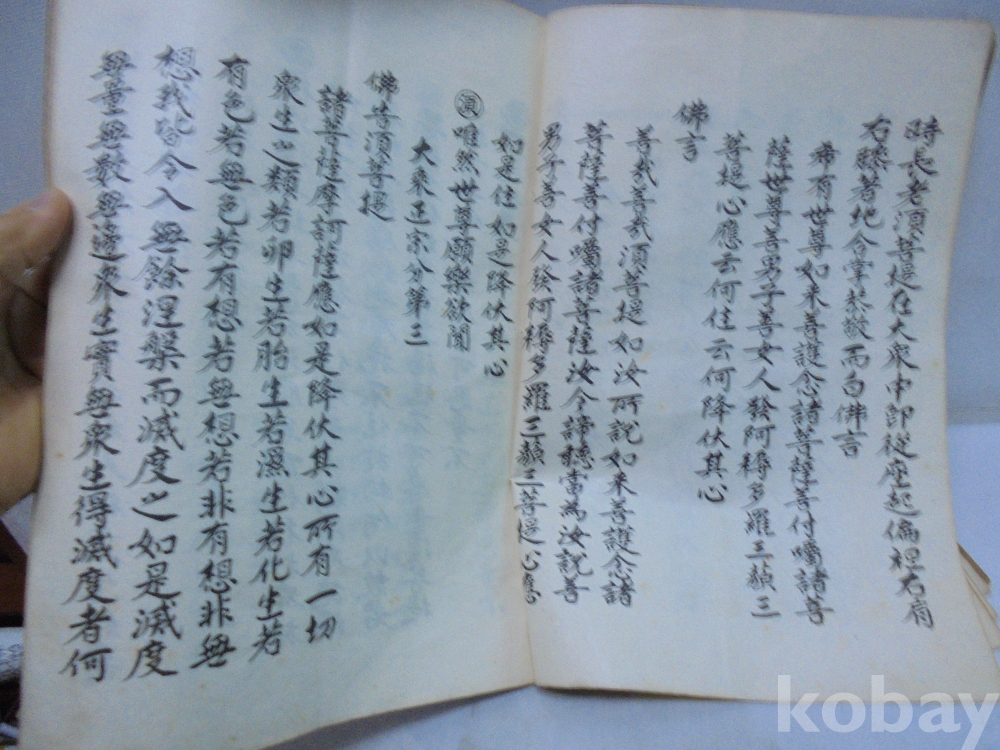 時長老須菩提在大衆中即從座起偏袒右肩
右膝着地合掌恭敬而白佛言
希有世尊如来善護念諸菩薩善付囑諸菩
薩世尊善男子善女人發阿耨多羅三藐三
菩提心應云何住云何降伏其心
佛言
善哉善哉須菩提如汝所說如来善護念諸
菩薩善付囑諸菩薩汝今諦聽當為汝說善
男子善女人發阿耨多羅三藐三菩提心應
如是住如是降伏其心
須 唯然世尊願樂欲聞
大乘正宗分第三
佛告須菩提
諸菩薩摩訶薩應如是降伏其心所有一切
衆生之類若卵生若胎生若濕生若化生若
有色若無色若有想若無想若非有想非無
想我皆令入無餘涅槃而滅度之如是滅度
無量無數無邊衆生實無衆生得滅度者何
kobay